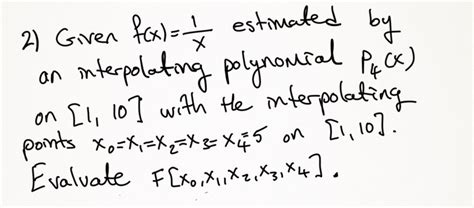 2) Given f(x)=1/x estimated by
an interpolating polynomial P₄(x)
on [1, 10] with the interpolating
points x₀=x₁=x₂=x₃=x₄=5 on [1,10].
Evaluate F[x₀,x₁,x₂,x₃,x₄].